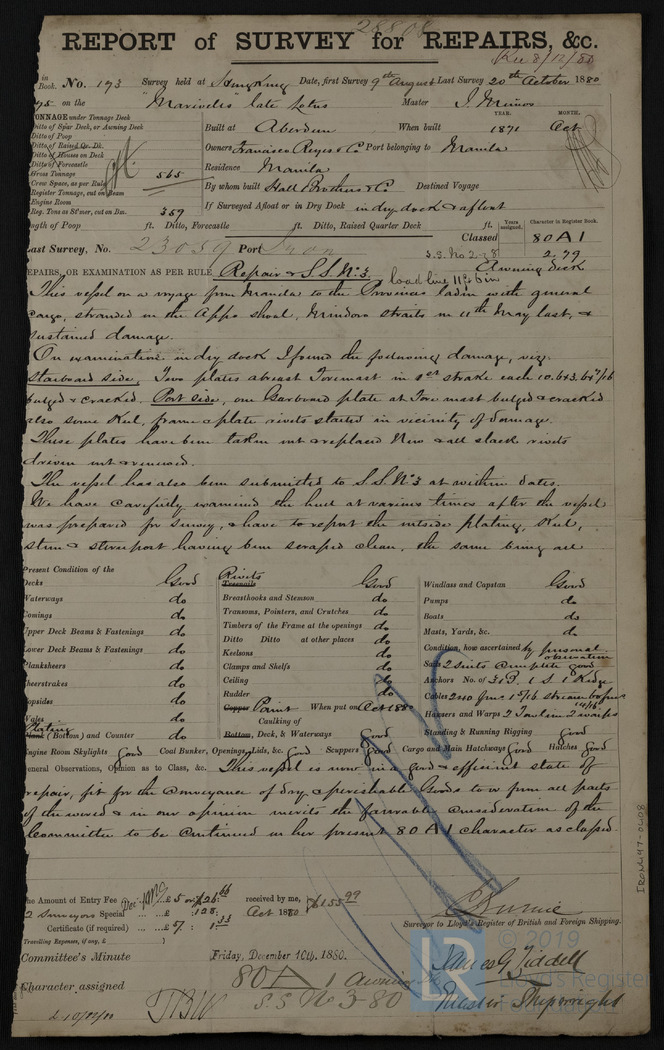 28808
REPORT of SURVEY for REPAIRS, &c.
Rec 8/12/80
in Book. No. 193 Survey held at Hong Kong Date, first Survey 9th August Last Survey 20th October 1880
on the "Mariveles" late Lotus Master
TONNAGE under Tonnage Deck
Ditto of Spar Deck, or Awning Deck
Ditto of Poop
Ditto of Raised Qr. Dk.
Ditto of Houses on Deck
Ditto of Forecastle
Gross Tonnage 565
Crew Space, as per Rule
Register Tonnage, cut on Beam
Engine Room
Reg. Tons as St'mer, cut on Bm. 359
YEAR. MONTH.
Built at Aberdeen When built 1871 Oct
Owners Francisco Reyes & Co Port belonging to Manila
Residence Manila
By whom built Hall Brothers & Co Destined Voyage
If Surveyed Afloat or in Dry Dock in dry dock & afloat
Length of Poop ft. Ditto, Forecastle ft. Ditto, Raised Quarter Deck ft.
Years assigned. Character in Register Book.
Classed 80 A 1
2.79
Last Survey, No. 23059 Port
Awning deck
REPAIRS, OR EXAMINATION AS PER RULE Repair & S.S. No 3.
load line 11 ft 6 in
This vessel on a voyage from Manila to the Provinces laden with general
cargo, stranded in the Appo shoal, Mindoro straits in 11th May last, &
sustained damage.
On examination in dry dock I found the following damage, viz:
Starboard side, Two plates abreast Foremast in 1st strake each
bulged & cracked. Port side, one Garboard plate at Foremast bulged & cracked
also some keel, frame & plate rivets started in vicinity of damage.
These plates have been taken out & replaced New & all slack rivets
driven out & renewed.
The vessel has also been submitted to S.S. No 3 at within dates.
We have carefully examined the hull at various times after the vessel
was prepared for survey, & have to report the outside plating, keel,
stem & sternpost having been scraped clean, the same being all
Present Condition of the
Decks Good
Waterways do
Comings do
Upper Deck Beams & Fastenings do
Lower Deck Beams & Fastenings do
Planksheers do
Sheerstrakes do
Topsides do
Wales do
Plating (Bottom) and Counter do
Rivets
Treenails Good
Breasthooks and Stemson do
Transoms, Pointers, and Crutches do
Timbers of the Frame at the openings do
Ditto Ditto at other places do
Keelsons do
Clamps and Shelfs do
Ceiling do
Rudder do
Copper Paint When put on Oct 1880
Caulking of
Bottom, Deck, & Waterways Good
Windlass and Capstan Good
Pumps do
Boats do
Masts, Yards, &c. do
Condition, how ascertained by personal observation
Sails 2 suits complete good
Anchors No. of 3 B. 1 S 1 Kedge
Cables
Hawsers and Warps 2 Towlines 2 warps
Standing & Running Rigging Good
Engine Room Skylights Good Coal Bunker, Openings, Lids, &c. Good Scuppers Good Cargo and Main Hatchways Good Hatches Good
General Observations, Opinion as to Class, &c. This vessel is now in a good & efficient state of
repair, fit for the conveyance of dry & perishable Goods to & from all parts
of the world & in our opinion merits the favorable consideration of the
Committee to be continued in her present 80 A 1 character as classed.
The Amount of Entry Fee
2 Surveyors Special
Certificate (if required)
Travelling Expenses, if any, £
received by me,
Oct 1880
Surveyor to Lloyd's Register of British and Foreign Shipping.
James G. Riddell
Master Shipwright
Committee's Minute Friday, December 10th, 1880.
Character assigned 80 A 1 Awning
S.S. No 3-80
IRON497-0408
LR
© 2019
Lloyd's Register
Foundation